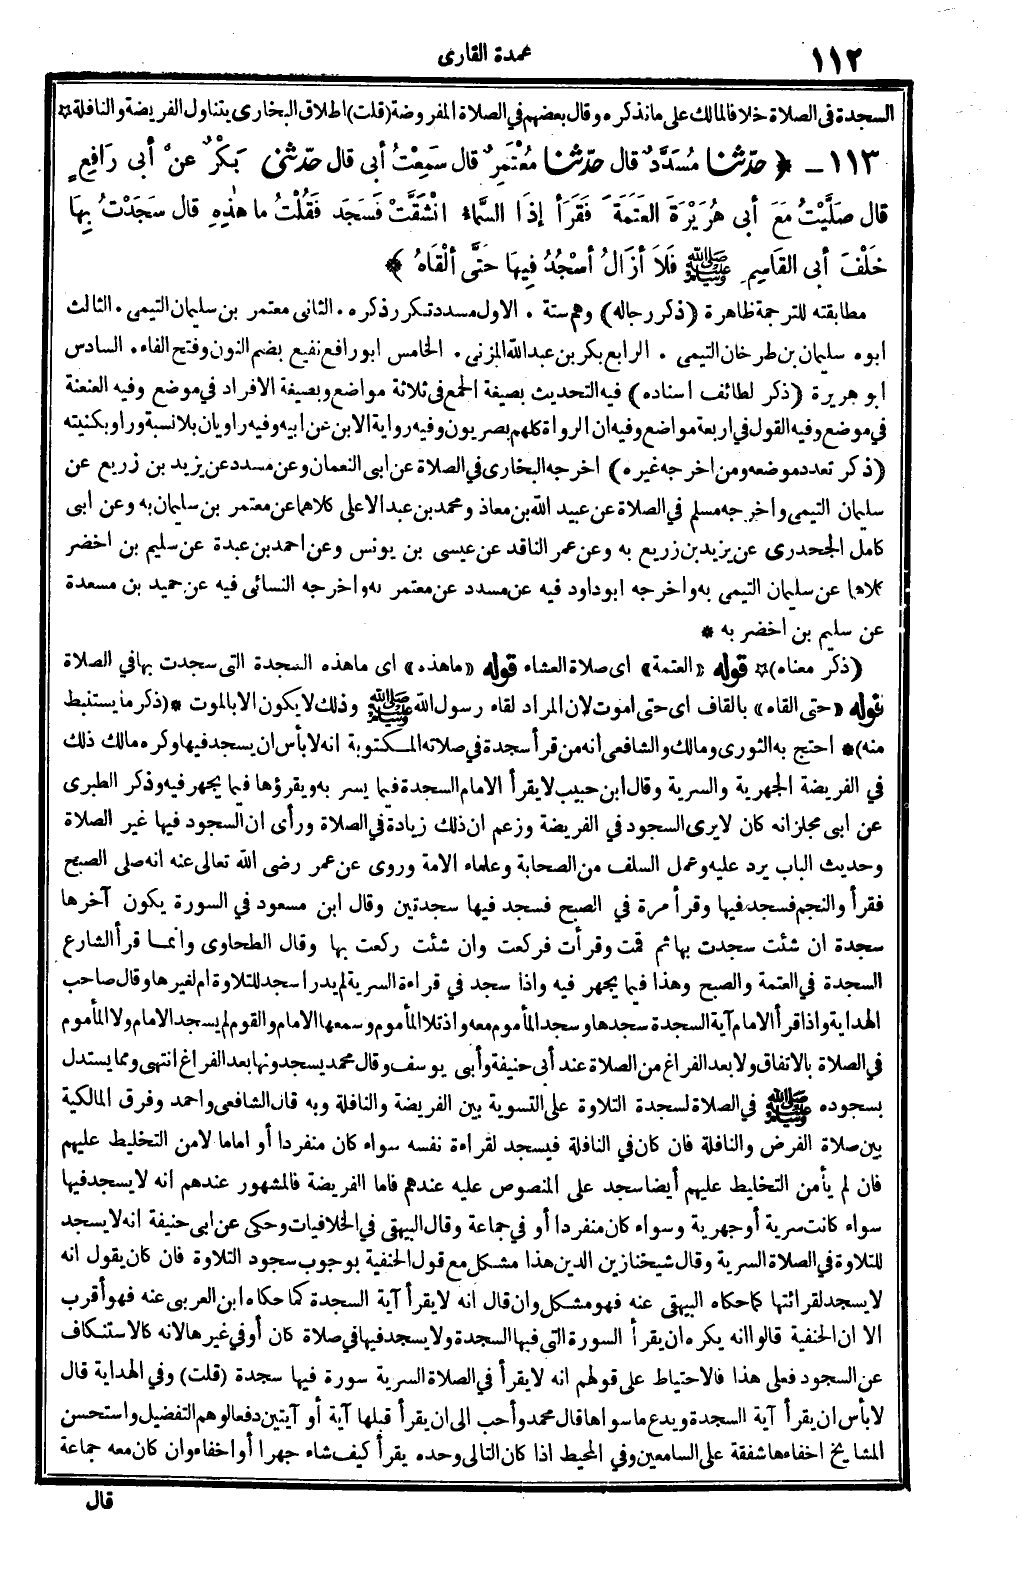 ١١٢
عمدة القارى
السجدة فى الصلاة خلافا لمالك على ما نذكره وقال بعضهم في الصلاة المفروضة (قلت) اطلاق البخارى يتناول الفريضة والنافلة *
١١٣ - ﴿ حَدَّثَنَا مُسَدَّدٌ قال حَدَّثَنَا مُعْتَمِرٌ قال سَمِعْتُ أبى قال حَدَّثَنى بَكْرٌ عنْ أبى رَافِعٍ
قال صَلَّيْتُ مَعَ أبى هُرَيْرَةَ العَتَمَةَ فَقَرَأَ إذَا السَّمَاءُ انْشَقَّتْ فَسَجَدَ فَقُلْتُ ما هٰذِهِ قال سَجَدْتُ بِهَا
خَلْفَ أبى القَاسِمِ ﷺ فَلاَ أزَالُ أسْجُدُ فِيهَا حَتَّى ألْقَاهُ * ﴾
مطابقته للترجمة ظاهرة (ذكر رجاله) وهم ستة . الاول مسدد تكرر ذكره . الثانى معتمر بن سليمان التيمى . الثالث
ابوه سليمان بن طرخان التيمى . الرابع بكر بن عبد الله المزنى . الخامس ابو رافع نفيع بضم النون وفتح الفاء . السادس
ابو هريرة (ذكر لطائف اسناده) فيه التحديث بصيغة الجمع فى ثلاثة مواضع وبصيغة الافراد في موضع وفيه العنعنة
في موضع وفيه القول في اربعة مواضع وفيه ان الرواة كلهم بصريون وفيه رواية الابن عن ابيه وفيه راويان بلا نسبة وراو بكنيته
(ذكر تعدد موضعه ومن اخرجه غيره) اخرجه البخارى في الصلاة عن ابى النعمان وعن مسدد عن يزيد بن زريع عن
سليمان التيمى واخرجه مسلم في الصلاة عن عبيد الله بن معاذ ومحمد بن عبد الاعلى كلاهما عن معتمر بن سليمان به وعن ابى
كامل الجحدرى عن يزيد بن زريع به وعن عمر الناقد عن عيسى بن يونس وعن احمد بن عبدة عن سليم بن اخضر
كلاهما عن سليمان التيمى به واخرجه ابو داود فيه عن مسدد عن معتمر به واخرجه النسائى فيه عن حميد بن مسعدة
عن سليم بن اخضر به *
(ذكر معناه) * قوله «العتمة» اى صلاة العشاء قوله «ما هذه» اى ما هذه السجدة التى سجدت بها في الصلاة
قوله «حتى القاه» بالقاف اى حتى اموت لان المراد لقاء رسول الله ﷺ وذلك لا يكون الا بالموت * (ذكر ما يستنبط
منه) * احتج به الثورى ومالك والشافعى انه من قرأ سجدة في صلاته المكتوبة انه لا بأس ان يسجد فيها وكره مالك ذلك
في الفريضة الجهرية والسرية وقال ابن حبيب لا يقرأ الامام السجدة فيما يسر به ويقرؤها فيما يجهر فيه وذكر الطبرى
عن ابى مجلز انه كان لا يرى السجود في الفريضة وزعم ان ذلك زيادة في الصلاة ورأى ان السجود فيها غير الصلاة
وحديث الباب يرد عليه وعمل السلف من الصحابة وعلماء الامة وروى عن عمر رضى الله تعالى عنه انه صلى الصبح
فقرأ والنجم فسجد فيها وقرأ مرة في الصبح فسجد فيها سجدتين وقال ابن مسعود في السورة يكون آخرها
سجدة ان شئت سجدت بها ثم قمت وقرأت فركعت وان شئت ركعت بها وقال الطحاوى وانما قرأ الشارع
السجدة في العتمة والصبح وهذا فيما يجهر فيه واذا سجد في قراءة السرية لم يدر اسجد للتلاوة ام لغيرها وقال صاحب
الهداية واذا قرأ الامام آية السجدة سجدها وسجد المأموم معه واذ تلا المأموم وسمعها الامام والقوم لم يسجد الامام ولا المأموم
في الصلاة بالاتفاق ولا بعد الفراغ من الصلاة عند أبى حنيفة وأبى يوسف وقال محمد يسجدونها بعد الفراغ انتهى ومما يستدل
بسجوده ﷺ في الصلاة لسجدة التلاوة على التسوية بين الفريضة والنافلة وبه قال الشافعى واحمد وفرق المالكية
بين صلاة الفرض والنافلة فان كان في النافلة فيسجد لقراءة نفسه سواء كان منفردا أو اماما لامن التخليط عليهم
فان لم يأمن التخليط عليهم أيضا سجد على المنصوص عليه عندهم فاما الفريضة فالمشهور عندهم انه لا يسجد فيها
سواء كانت سرية أو جهرية وسواء كان منفردا أو في جماعة وقال البيهقى في الخلافيات وحكى عن ابى حنيفة انه لا يسجد
للتلاوة في الصلاة السرية وقال شيخنا زين الدين هذا مشكل مع قول الحنفية بوجوب سجود التلاوة فان كان يقول انه
لا يسجد لقرائتها كما حكاه البيهقى عنه فهو مشكل وان قال انه لا يقرأ آية السجدة كما حكاه ابن العربى عنه فهو أقرب
الا ان الحنفية قالوا انه يكره ان يقرأ السورة التى فيها السجدة ولا يسجد فيها في صلاة كان أو في غيرها لانه كالاستنكاف
عن السجود فعلى هذا فالاحتياط على قولهم انه لا يقرأ في الصلاة السرية سورة فيها سجدة (قلت) وفي الهداية قال
لا بأس ان يقرأ آية السجدة ويدع ما سواها قال محمد وأحب الى ان يقرأ قبلها آية أو آيتين دفعا لوهم التفضيل واستحسن
المشايخ اخفاءها شفقة على السامعين وفي المحيط اذا كان التالى وحده يقرأ كيف شاء جهرا أو اخفاء وان كان معه جماعة
قال